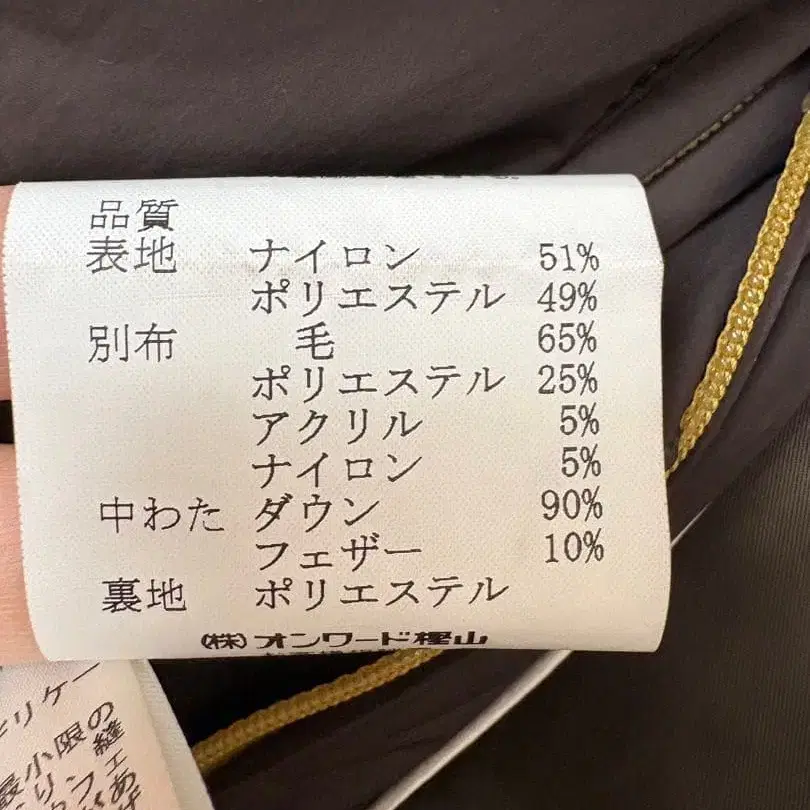 品質
表地 ナイロン 51%
ポリエステル 49%
別布 毛 65%
ポリエステル 25%
アクリル 5%
ナイロン 5%
中わた ダウン 90%
フェザー 10%
裏地 ポリエステル
(株)オンワード樫山
デリケー
最小限の